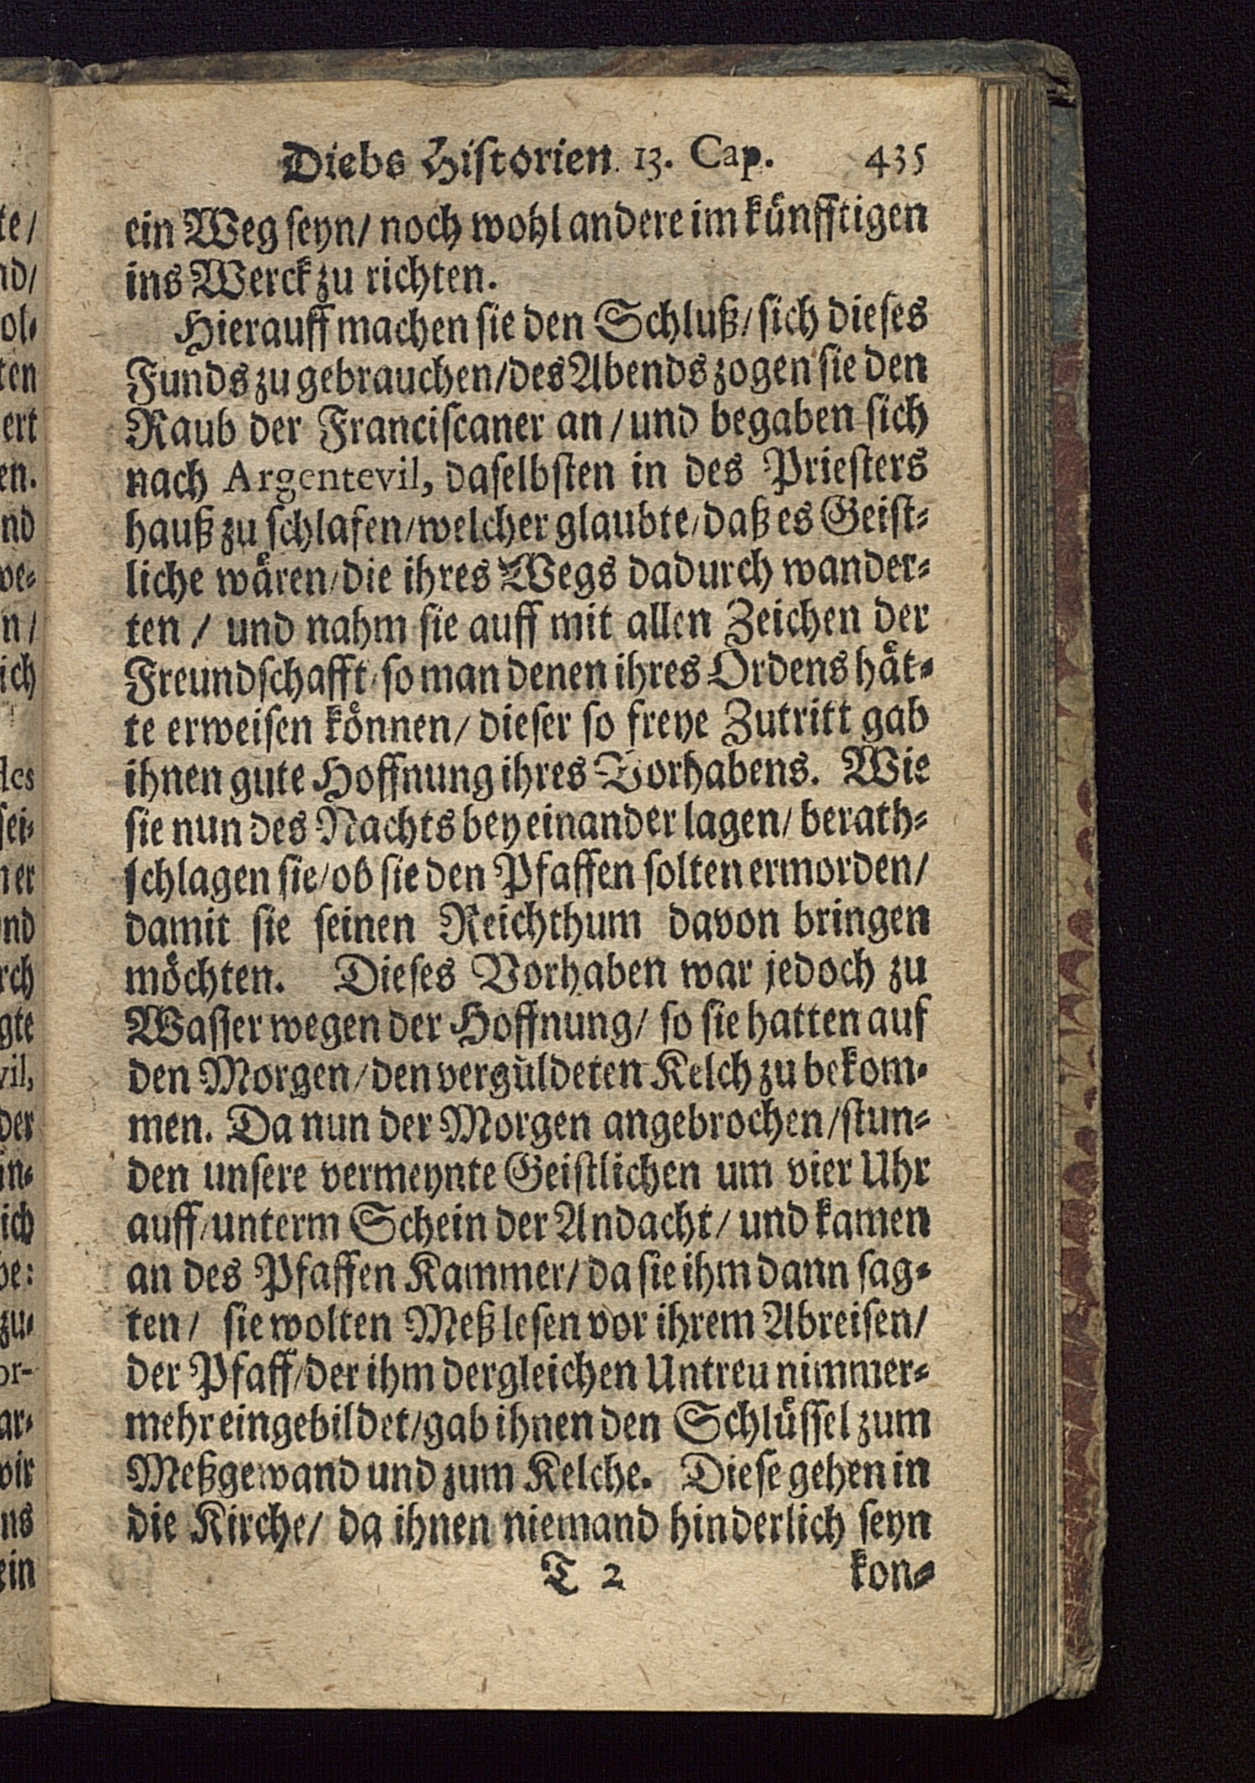 Diebs Historien 13. Cap. 435
ein Weg seyn/ noch wohl andere im künfftigen
ins Werck zu richten.
Hierauff machen sie den Schluß/ sich dieses
Funds zu gebrauchen/ des Abends zogen sie den
Raub der Franciscaner an/ und begaben sich
nach Argentevil, daselbsten in des Priesters
hauß zu schlafen/ welcher glaubte/ daß es Geist-
liche wären/ die ihres Wegs dadurch wander-
ten / und nahm sie auff mit allen Zeichen der
Freundschafft/ so man denen ihres Ordens hät-
te erweisen können/ dieser so freye Zutritt gab
ihnen gute Hoffnung ihres Vorhabens. Wie
sie nun des Nachts bey einander lagen/ berath-
schlagen sie/ ob sie den Pfaffen solten ermorden/
damit sie seinen Reichthum davon bringen
möchten. Dieses Vorhaben war jedoch zu
Wasser wegen der Hoffnung/ so sie hatten auf
den Morgen/ den verguldeten Kelch zu bekom-
men. Da nun der Morgen angebrochen/ stun-
den unsere vermeynte Geistlichen um vier Uhr
auff/ unterm Schein der Andacht/ und kamen
an des Pfaffen Kammer/ da sie ihm dann sag-
ten/ sie wolten Meß lesen vor ihrem Abreisen/
der Pfaff/ der ihm dergleichen Untreu nimmer-
mehr eingebildet/ gab ihnen den Schlüssel zum
Meßgewand und zum Kelche. Diese gehen in
die Kirche/ da ihnen niemand hinderlich seyn
T 2 kon-